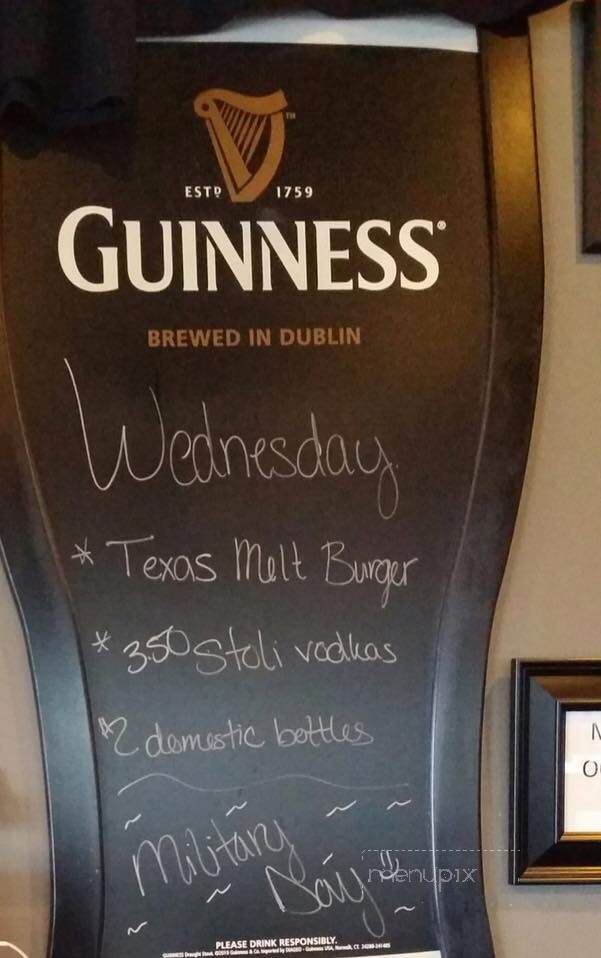 ESTD 1759
TM
GUINNESS®
BREWED IN DUBLIN
Wednesday
* Texas Melt Burger
* 3.50 Stoli vodkas
*2 domestic bottles
Military
Day
menupix
PLEASE DRINK RESPONSIBLY.